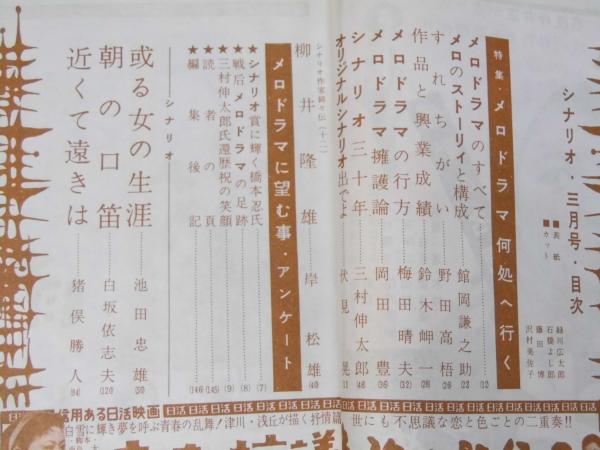 シナリオ・三月号・目次
■表紙
■カット
緑川広太郎
石橋よし郎
藤田博
沢村美佐子
特集・メロドラマ何処へ行く
メロドラマのすべて (12)
メロのストーリイと構成 館岡謙之助 (22)
すれちがい 野田高梧 (26)
作品と興業成績 鈴木岬一 (28)
メロドラマの行方 梅田晴夫 (32)
メロドラマ擁護論 岡田豊 (36)
シナリオ三十年 三村伸太郎 (46)
オリジナルシナリオ出でよ 伏見晃 (11)
シナリオ作家銘々伝(十二)
柳井隆雄 岸松雄 (40)
メロドラマに望む事・アンケート
★シナリオ賞に輝く橋本忍氏 (7)
★戦后メロドラマの足跡 (8)
★三村伸太郎氏還歴祝の笑顔 (9)
★読者の頁 (145)
★編集後記 (146)
シナリオ
或る女の生涯 池田忠雄 (50)
朝の口笛 白坂依志夫 (120)
近くて遠きは 猪俣勝人 (84)
日活 信用ある日活映画 日活 日活 日活 日活 日活 日活 日活 日活
白雪に輝き夢を呼ぶ青春の乱舞!津川・浅丘が描く抒情篇
世にも不思議な恋と色ごとの二重奏!!